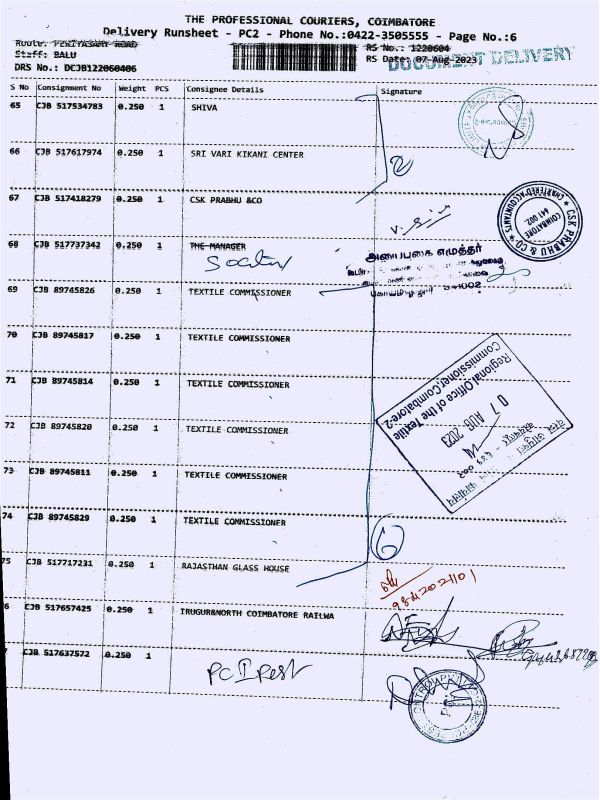 THE PROFESSIONAL COURIERS, COIMBATORE
Delivery Runsheet - PC2 - Phone No.:0422-3505555 - Page No.:6
Route: PERIYASAMY ROAD RS No.: 1220604
Staff: BALU RS Date: 07-Aug-2023
DOCUMENT DELIVERY
DRS No.: DCJB122060406
S No Consignment No Weight PCS Consignee Details Signature
65 CJB 517534783 0.250 1 SHIVA
66 CJB 517617974 0.250 1 SRI VARI KIKANI CENTER
2
67 CJB 517418279 0.250 1 CSK PRABHU &CO
CSK PRABHU & CO
CHARTERED ACCOUNTANTS
COIMBATORE
641 002
68 CJB 517737342 0.250 1 THE MANAGER
அடிப்புகை எழுத்தர்
641002
69 CJB 89745826 0.250 1 TEXTILE COMMISSIONER
70 CJB 89745817 0.250 1 TEXTILE COMMISSIONER
71 CJB 89745814 0.250 1 TEXTILE COMMISSIONER
Regional Office of the Textile
Commissioner, Coimbatore-2
07 AUG 2023
72 CJB 89745820 0.250 1 TEXTILE COMMISSIONER
73 CJB 89745811 0.250 1 TEXTILE COMMISSIONER
74 CJB 89745829 0.250 1 TEXTILE COMMISSIONER
6
75 CJB 517717231 0.250 1 RAJASTHAN GLASS HOUSE
6 CJB 517657425 0.250 1 IRUGUR&NORTH COIMBATORE RAILWA
7 CJB 517637572 0.250 1